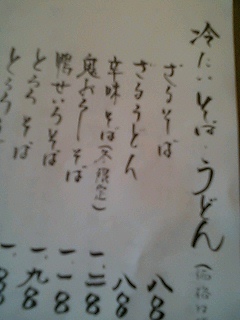 冷たいそば・うどん
ざるそば 八8
ざるうどん 八8
辛味そば(冬限定) 一.二8
鬼おろしそば 一.一8
鴨せいろそば 一.九8
とろろそば
とろろ